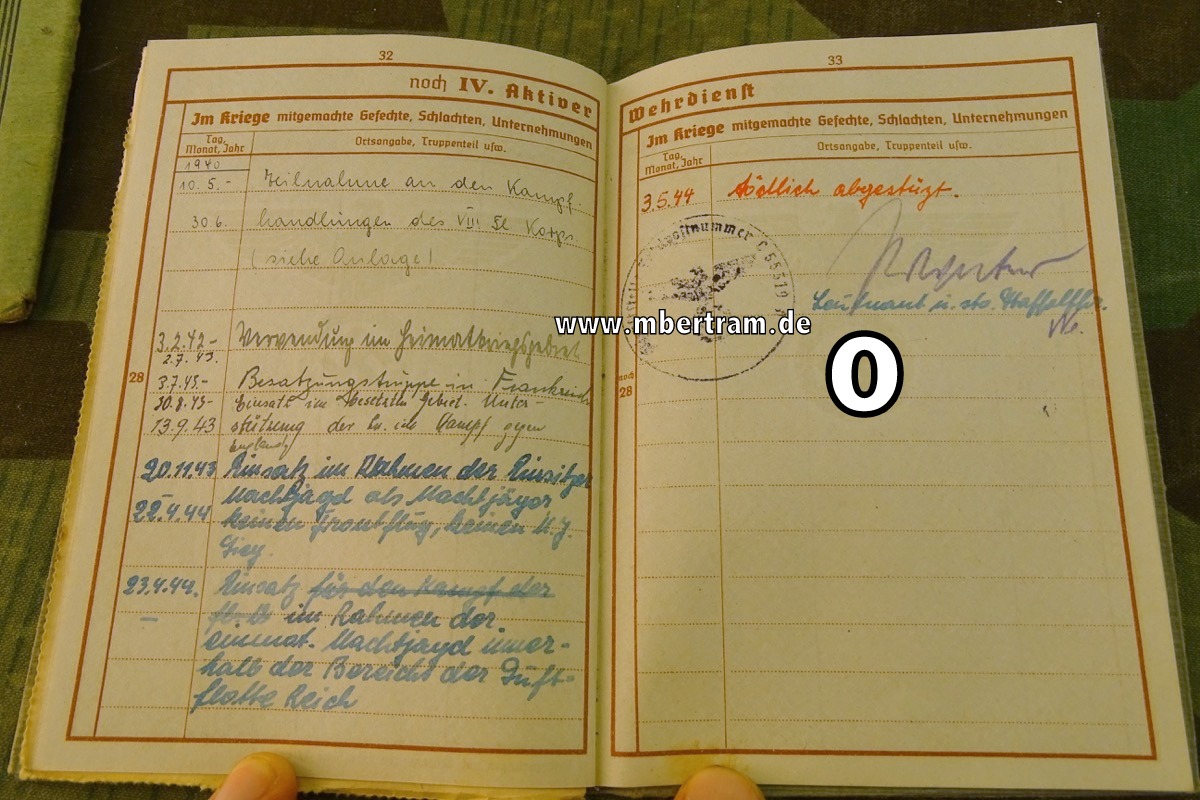 32
noch IV. Aktiver
Im Kriege mitgemachte Gefechte, Schlachten, Unternehmungen
Tag, Monat, Jahr
Ortsangabe, Truppenteil usw.
1940
10.5.- Teilnahme an den Kampf-
30 6. handlungen des VIII. Fl. Korps
(siehe Anlage)
3.2.42- Verwendung im Heimatkriegsgebiet
2.7.43.
28
3.7.43.- Besatzungstruppe in Frankreich
30.8.43- Einsatz im besetzten Gebiet. Unter-
13.9.43 stützung der Lw. im Kampf gegen
England
20.11.43 Einsatz im Rahmen der Einsitzer
Nachtjagd als Nachtjäger
22.4.44 keinen Frontflug, keinen N.J.
Sieg.
23.4.44. Einsatz für den Kampf der
- im Rahmen der
einmot. Nachtjagd inner-
halb der Bereichs der Luft-
flotte Reich
33
Wehrdienst
Im Kriege mitgemachte Gefechte, Schlachten, Unternehmungen
Tag, Monat, Jahr
Ortsangabe, Truppenteil usw.
3.5.44 tödlich abgestüzt.
Feldpostnummer L 55519
Leutnant u. stv. Staffelfhr.
noch 28
www.mbertram.de
0